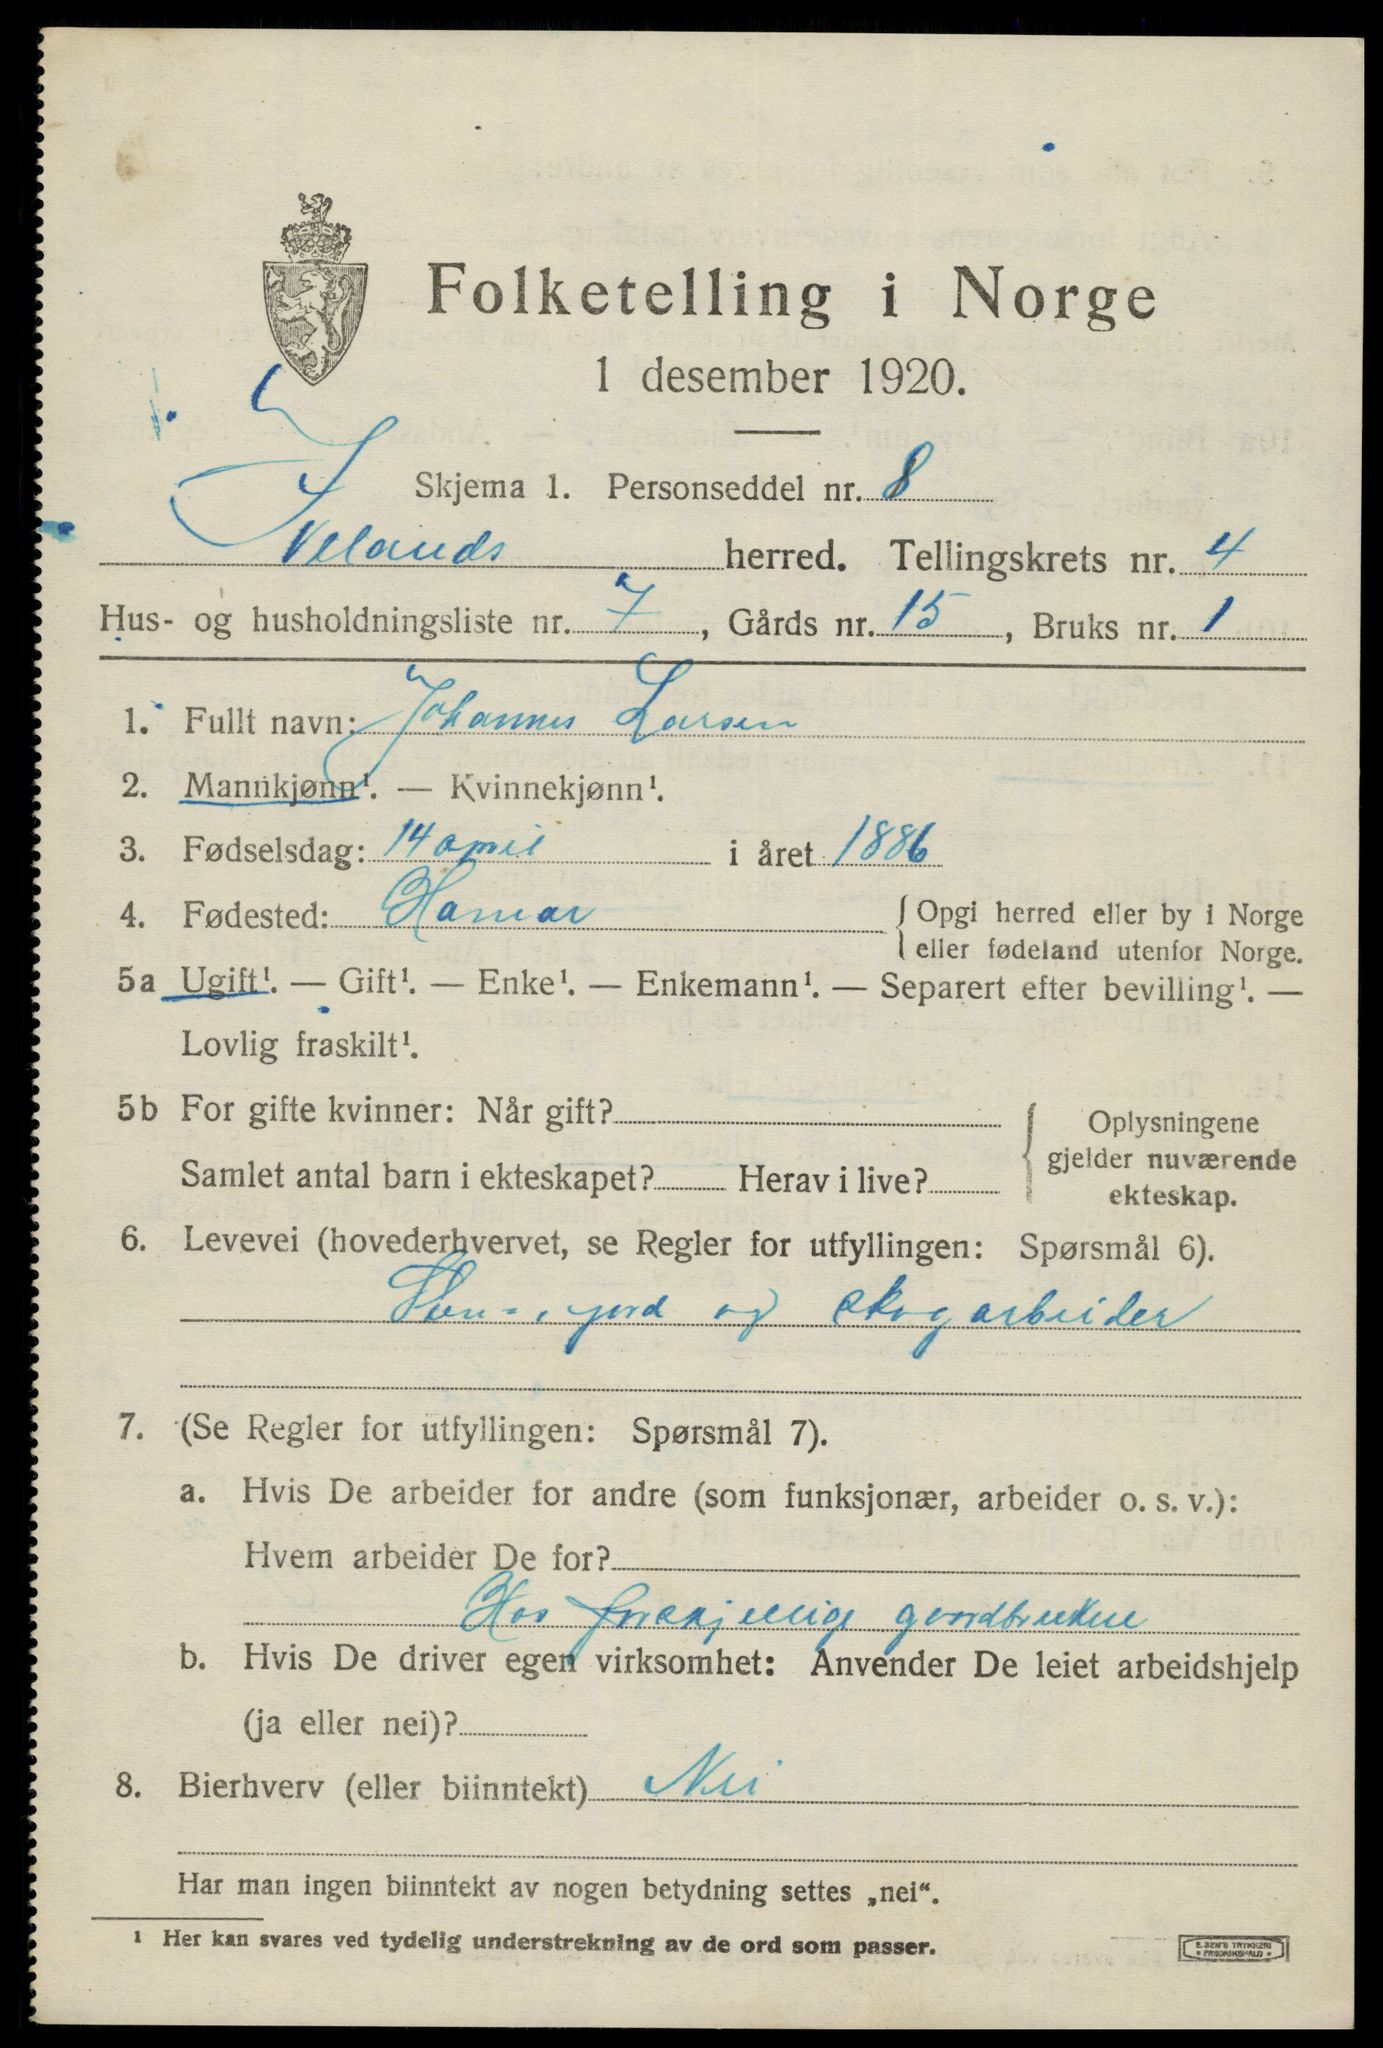 Folketelling i Norge
1 desember 1920.
Skjema 1. Personseddel nr. 8
Ivelands herred. Tellingskrets nr. 4
Hus- og husholdningsliste nr. 7, Gårds nr. 15, Bruks nr. 1
1. Fullt navn: Johannes Larsen
2. Mannkjønn¹. — Kvinnekjønn¹.
3. Fødselsdag: 14 april i året 1886
4. Fødested: Hamar {Opgi herred eller by i Norge
eller fødeland utenfor Norge.
5a Ugift¹. — Gift¹. — Enke¹. — Enkemann¹. — Separert efter bevilling¹. —
Lovlig fraskilt¹.
5b For gifte kvinner: Når gift?
Samlet antal barn i ekteskapet? Herav i live?
{Oplysningene
gjelder nuværende
ekteskap.
6. Levevei (hovederhvervet, se Regler for utfyllingen: Spørsmål 6).
jord og skogarbeider
7. (Se Regler for utfyllingen: Spørsmål 7).
a. Hvis De arbeider for andre (som funksjonær, arbeider o. s. v.):
Hvem arbeider De for?
Hos forskjellige
b. Hvis De driver egen virksomhet: Anvender De leiet arbeidshjelp
(ja eller nei)?
8. Bierhverv (eller biinntekt) Nei
Har man ingen biinntekt av nogen betydning settes „nei“.
¹ Her kan svares ved tydelig understrekning av de ord som passer.
E. SEM'S TRYKKERI
FREDRIKSHALD